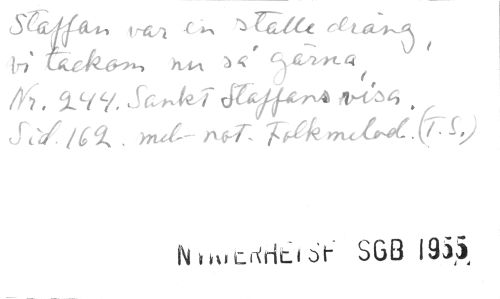 Staffan var en stalledräng,
vi tackom nu så gärna,
Nr. 244. Sankt Staffans visa.
Sid. 162. mel-not. Folkmelod. (T.S.)
SGB 1955